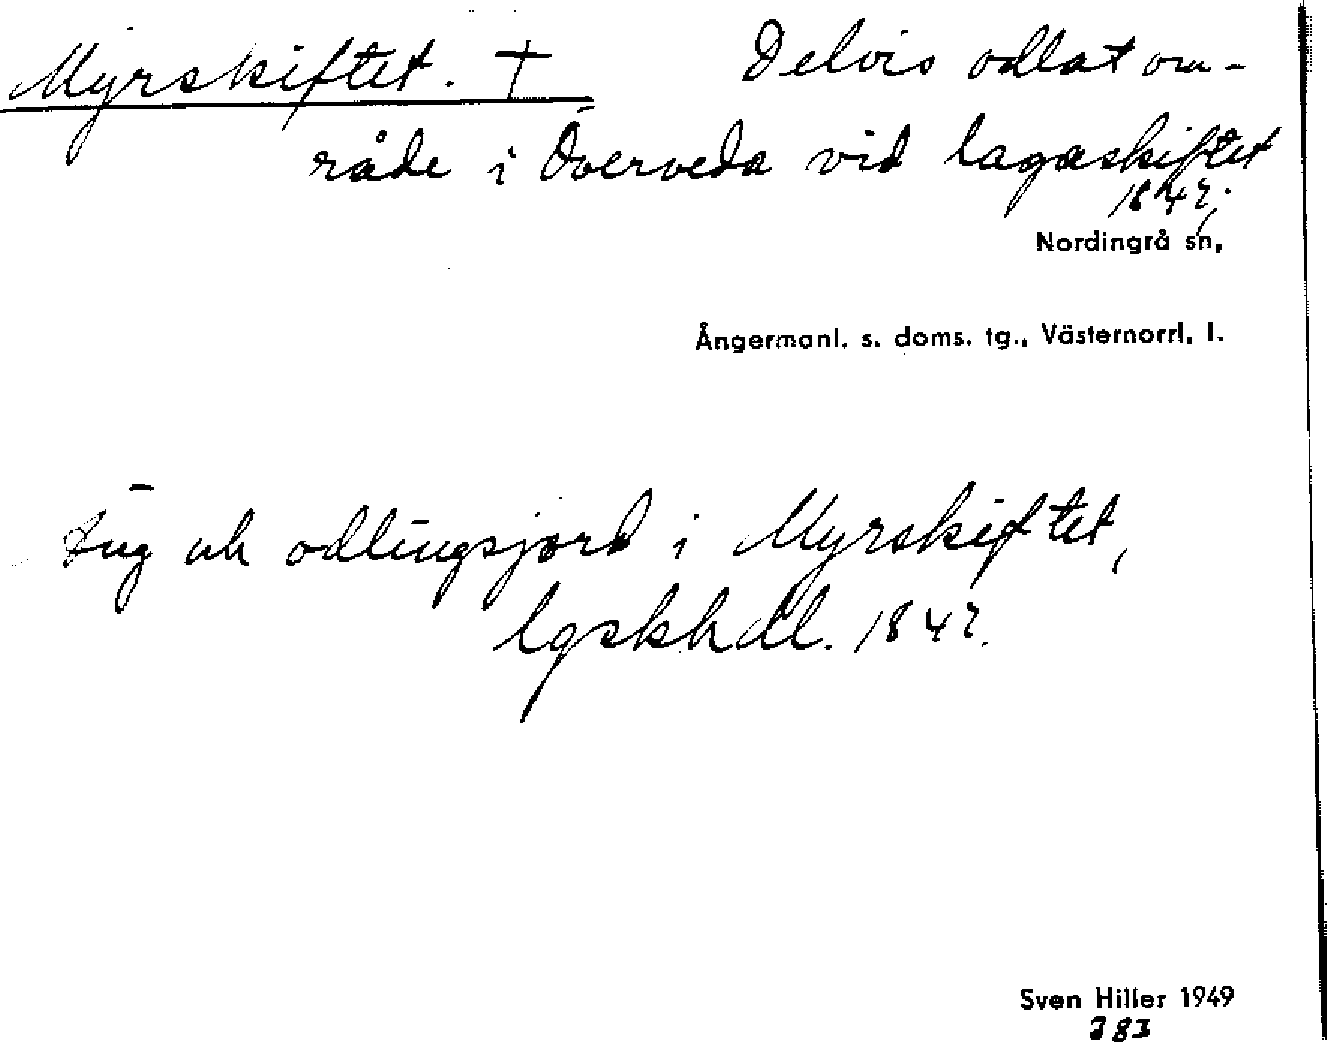 Myrskiftet. † Delvis odlat om-
råde i Överveda vid lagaskiftet
1842;
Nordingrå sn,
Ångermanl. s. doms. tg., Västernorrl. l.
Äng och odlingsjord i Myrskiftet,
lgskhdl. 1842.
Sven Hiller 1949
383